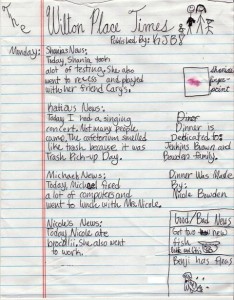 The Wilton Place Times
Published By: KJB8
Monday:
Shania's News:
Today, Shania took
alot of testing. She also
went to recess and played
with her friend Carys.
Shania's
finger-
paint
Kattia's News:
Today I had a singing
concert. Not many people
came. The cafetorium smelled
like trash because it was
Trash Pick-up Day.
Diner
Dinner is
Dedicated to:
Jenkins Brown and
Bowden family.
Michael's News:
Today, Michael fixed
a lot of computers and
went to lunch with Ms. Nicole.
Dinner Was Made
By:
Nicole Bowden
Nicole's News:
Today, Nicole ate
broccili, She also went
to work.
Good/Bad News
Got two new
fish
Benji has fleas